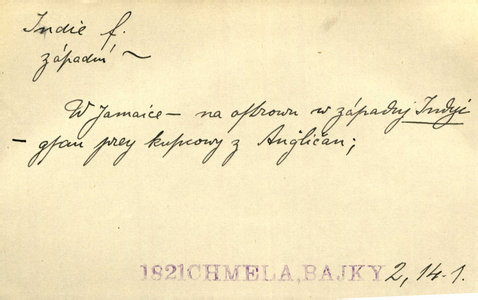 Indie f.
západní ~
W Jamaice – na ostrowu w západnj Indyi
– gsau prey kupcowy z Angličan;
1821 CHMELA, BAJKY 2, 14.1.